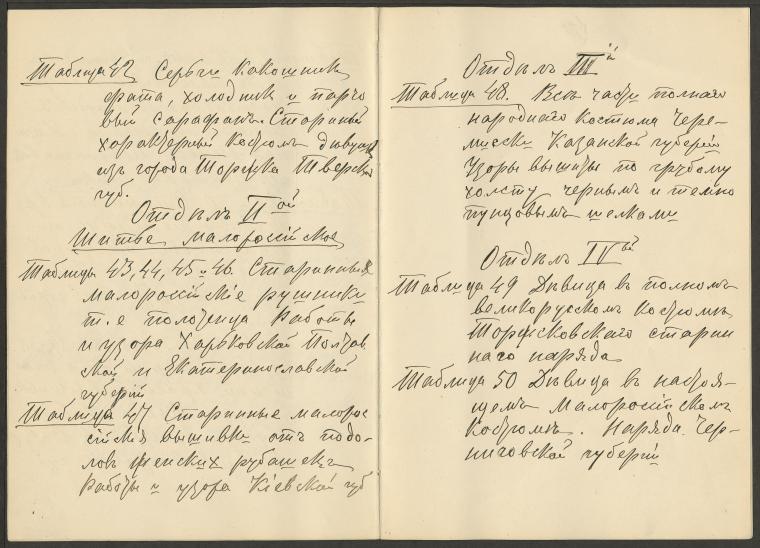 Таблица 42 Серьги Кокошник
фата, холодник и парчо
вый сарафанъ. Старинный
характерный костюмъ дѣвушки
изъ города Торжка Тверской
губ.
Отдѣлъ II ой
Шитье малороссійское
Таблицы 43, 44, 45 и 46. Старинные
малороссійскіе рушники
т. е полотенца Работы
и узора Харьковской Полтав
ской и Екатеринославской
губерній
Таблица 47 Старинные малорос
сійскія вышивки отъ подо-
ловъ женскихъ рубашекъ
Работы и узора Кіевской губ
Отдѣлъ III й
Таблица 48. Всѣ части полнаго
народнаго костюма Чере-
миски Казанской губерніи
Узоры вышиты по грубому
холсту чернымъ и темно
пунцовымъ шелками
Отдѣлъ IV й
Таблица 49 Дѣвица въ полномъ
великорусскомъ костюмѣ
Торжсковскаго старин
наго наряда
Таблица 50 Дѣвица въ настоя-
щемъ Малороссійскомъ
Костюмѣ. Наряда Чер-
ниговской губерніи